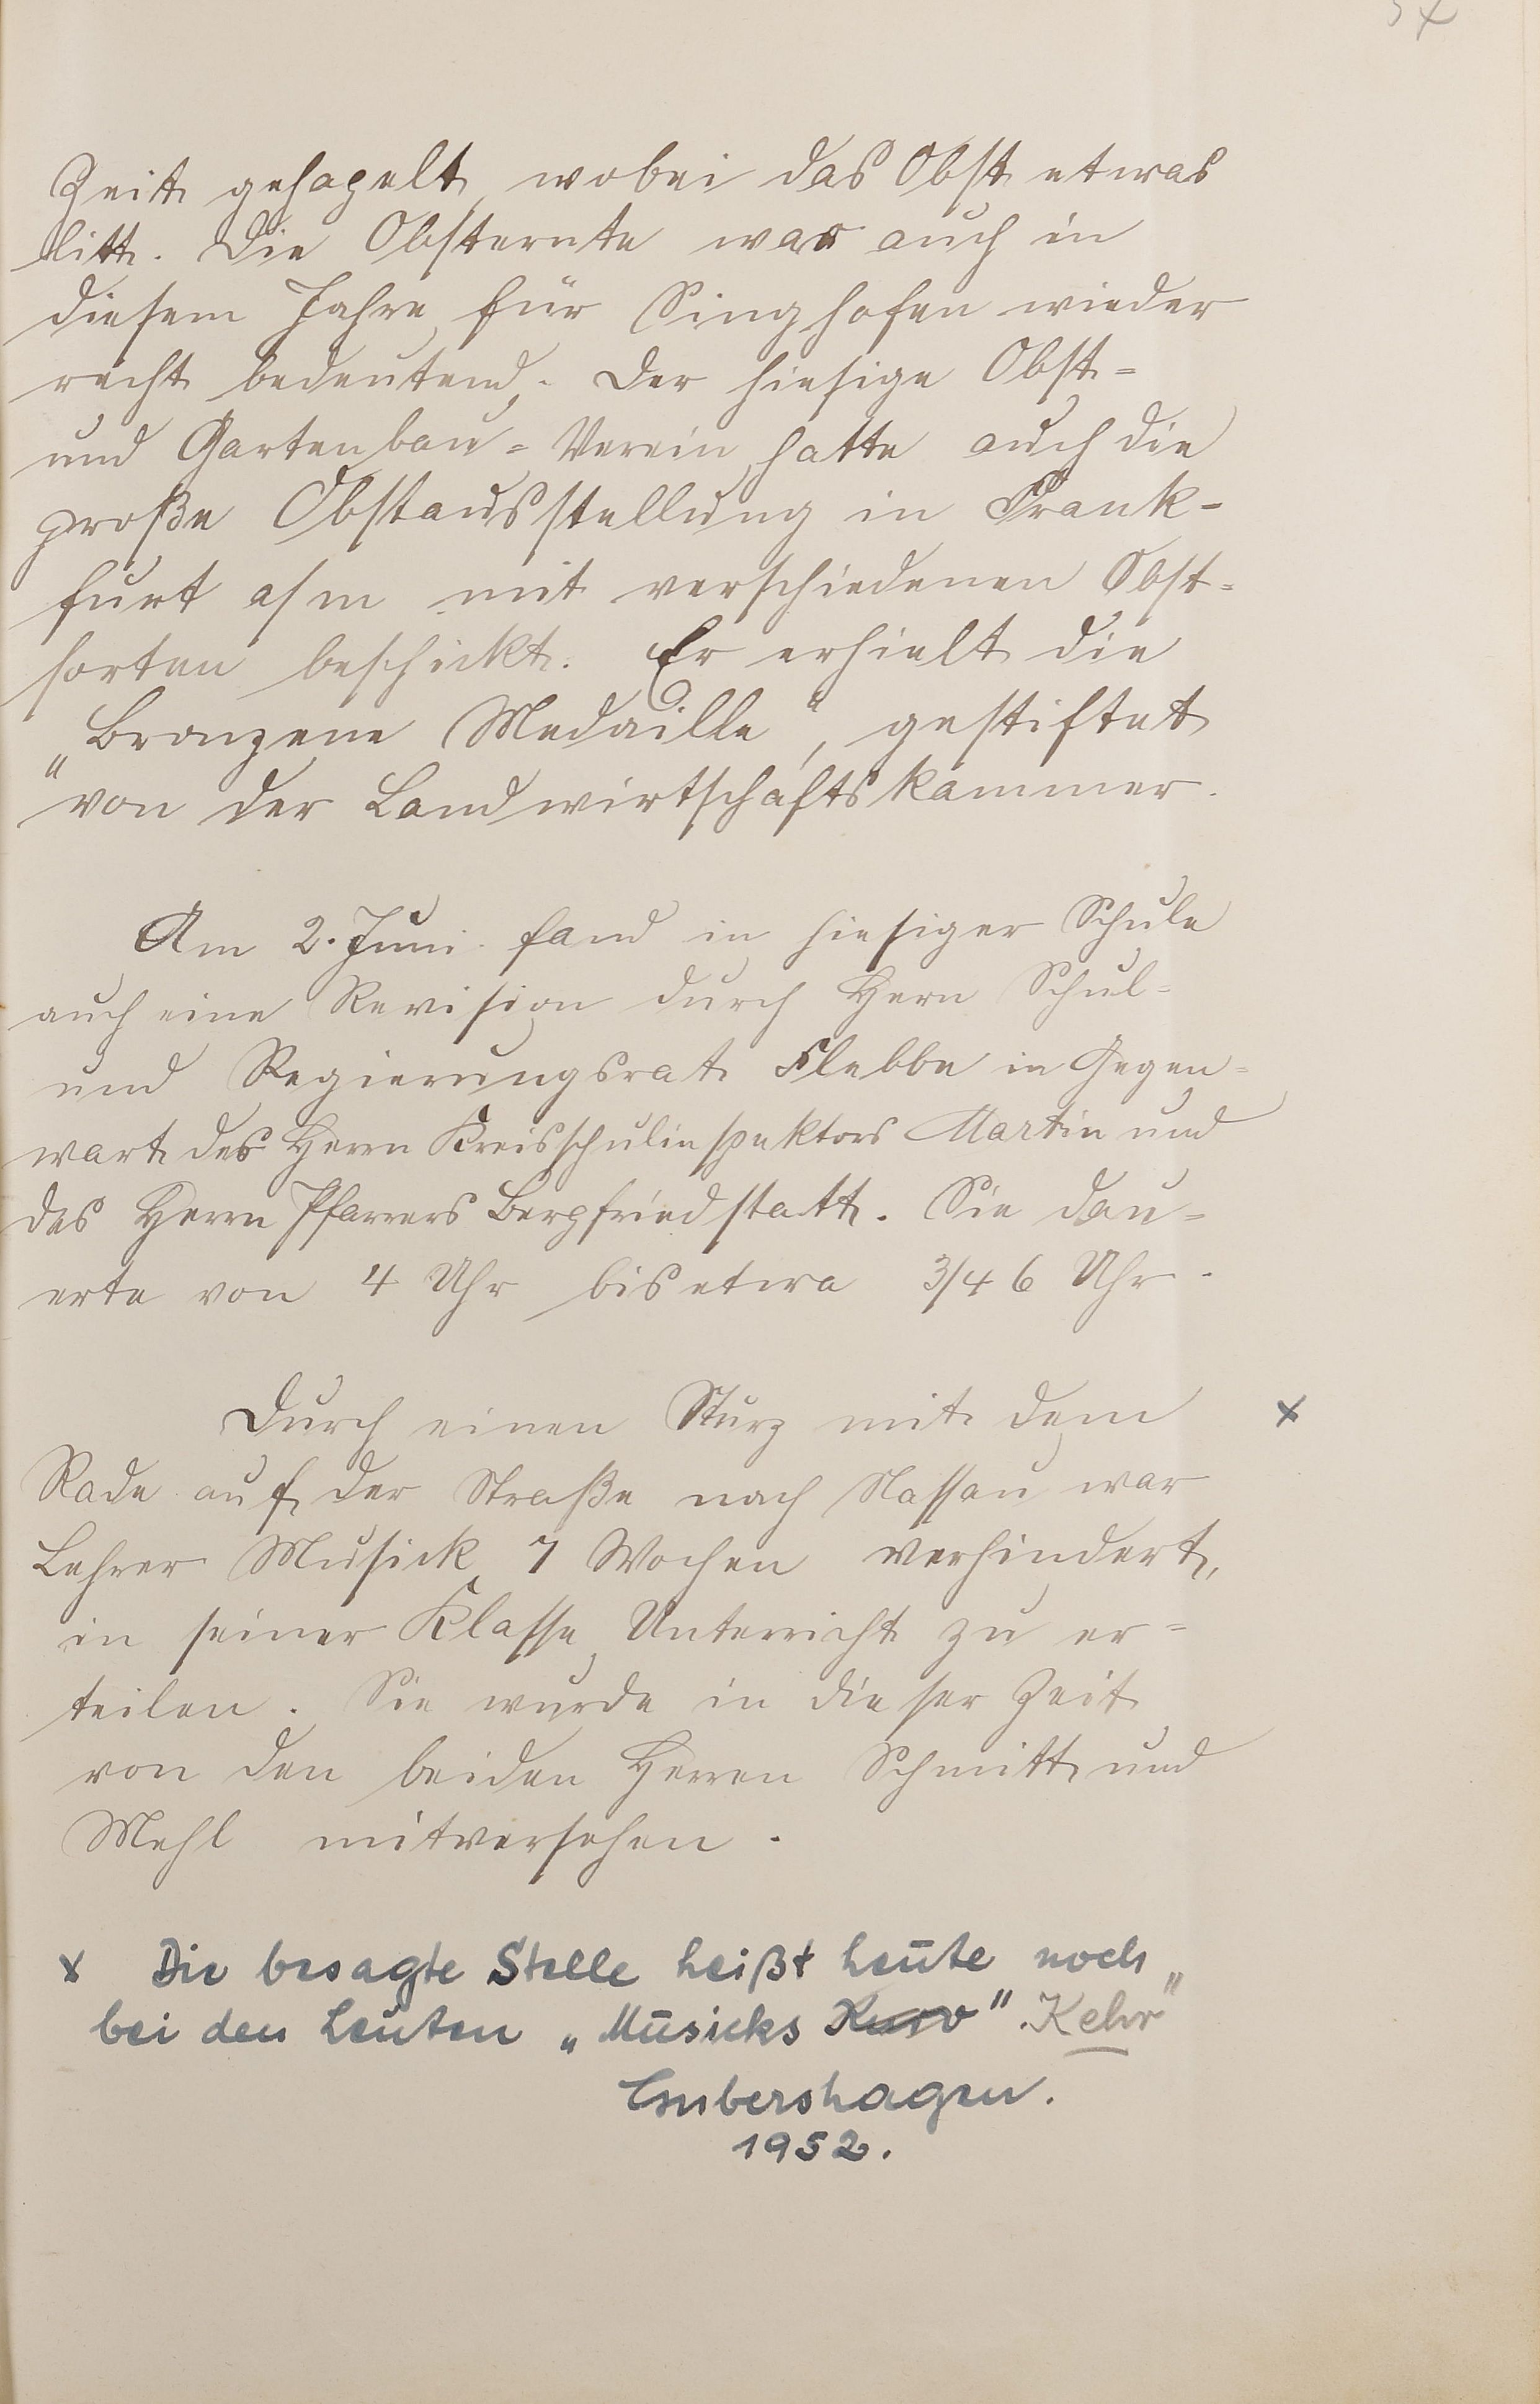 Zeit gehagelt, wobei das Obst etwas
litt. Die Obsternte war auch in
diesem Jahre für Singhofen wieder
recht bedeutend. Der hiesige Obst=
und Gartenbau=Verein hatte auch die
große Obstausstellung in Frank-
furt a/m mit verschiedenen Obst=
sorten beschickt. Er erhielt die
„Bronzene Medaille“, gestiftet
von der Landwirtschaftskammer.
Am 2. Juni fand in hiesiger Schule
auch eine Revision durch Herrn Schul=
und Regierungsrat Flebbe in Gegen=
wart des Herrn Kreisschulinspektors Martin und
des Herrn Pfarrers Bergfriedstatt. Sie dau=
erte von 4 Uhr bis etwa 3/4 6 Uhr.
Durch einen Sturz mit dem x
Rade auf der Straße nach Nassau war
Lehrer Musick 7 Wochen verhindert,
in seiner Klasse Unterricht zu er=
teilen. Sie wurde in dieser Zeit
von den beiden Herren Schmitt und
Mehl mitversehen.
x Die besagte Stelle heißt heute noch
bei den Leuten „Musicks Kurv" „Kehr"
Embershagen.
1952.